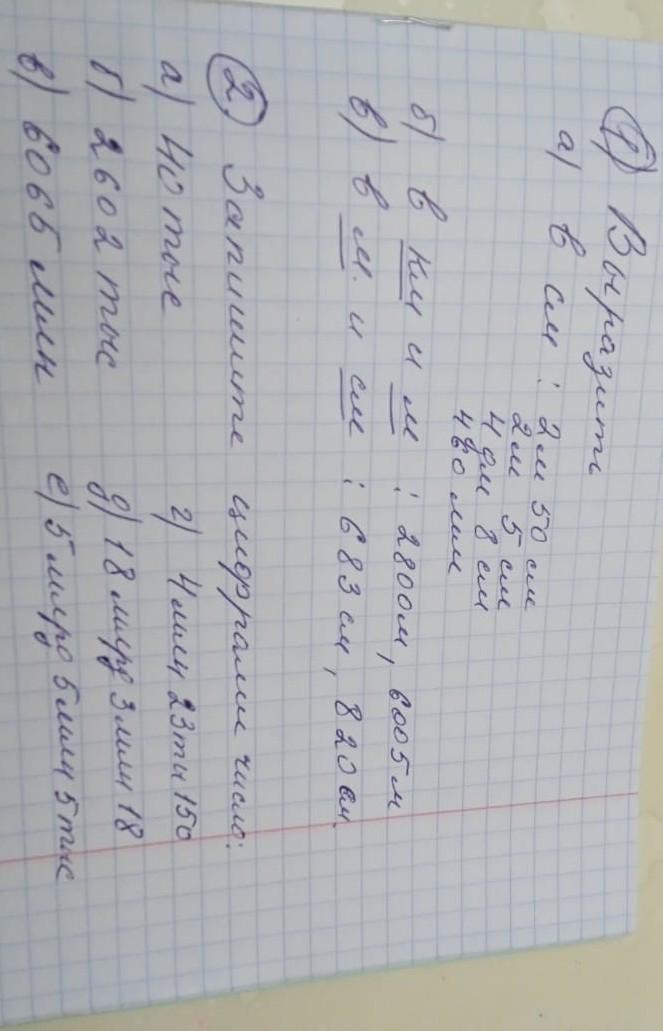 ① Выразить
а) в см : 2м 50 см
2м 5 см
4 дм 8 см
480 мм
б) в км и м : 2800м, 6005м
в) в м. и см : 683 см, 820 см.
② Запишите цифрами число:
а) 40 тыс г) 4 млн 23 ты 150
б) 2602 тыс д) 18 млрд 3 млн 18
в) 6065 млн е) 5 млрд 5 млн 5 тыс